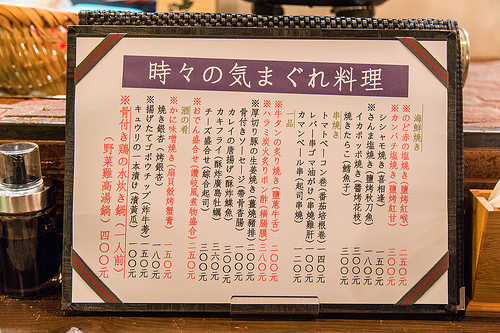 時々の気まぐれ料理
海鮮焼き
※のど赤の塩焼き（鹽烤紅喉） 二五〇元
※カンパチ塩焼き（鹽烤紅甘） 二〇〇元
シシャモ焼き（喜相逢） 一五〇元
※さんま塩焼き（鹽烤秋刀魚） 二〇〇元
イカポッポ焼き（醬烤花枝） 三〇〇元
焼きたらこ（鱈魚子） 二〇〇元
串焼き
トマトベーコン巻（番茄培根卷） 四〇元
レバーニラごま油がけ（串燒雞肝）
カマンベール串（起司串燒） 二〇〇元
一品
※牛タンの炙り焼き（鹽蔥牛舌） 二〇〇元
※ハラミ炭火炙りポン酢（橫膈膜） 三八〇元
※厚切り豚の生姜焼き（薑燒豬排） 二〇〇元
骨付きソーセージ（帶骨香腸） 二〇〇元
カレイの唐揚げ（酥炸鰈魚） 二〇〇元
カキフライ（酥炸廣島牡蠣） 三六〇元
チーズ盛合せ（綜合起司） 三〇〇元
※おでん盛合せ（讚岐風煮物盛合） 二五〇元
酒の肴
※かに味噌焼き（扇貝殼烤蟹膏） 一五〇元
焼き銀杏（烤銀杏） 一五〇元
※揚げたてゴボウチップ（炸牛蒡） 一八〇元
キュウリの一本漬け（漬黃瓜） 一〇〇元
※骨付き鶏の水炊き鍋（一人前）
（野菜雞高湯鍋） 四〇〇元